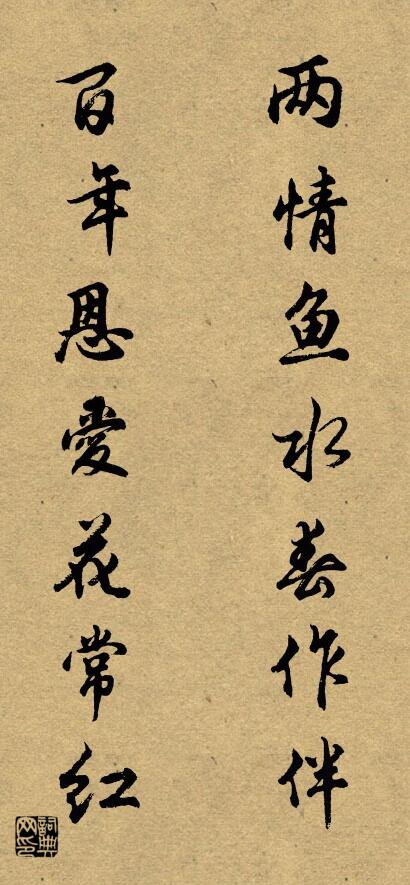 两情鱼水春作伴
百年恩爱花常红
词典网印